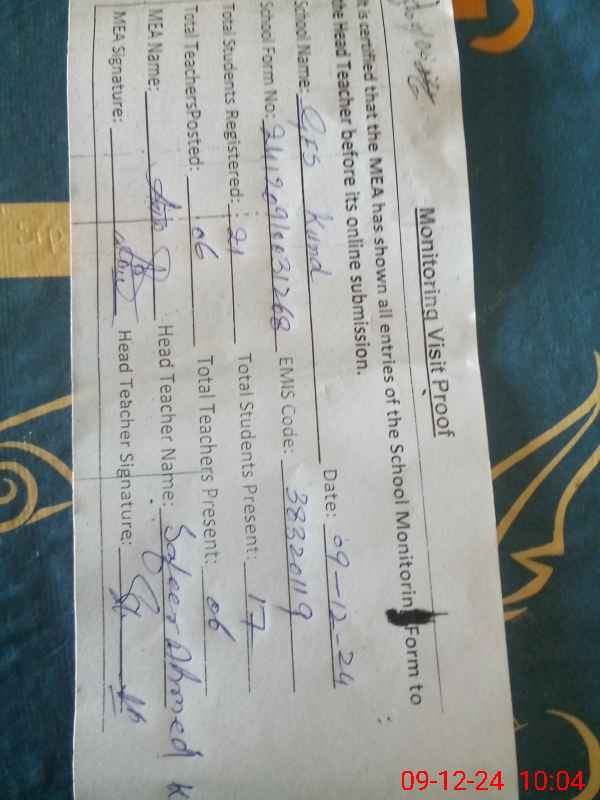 Monitoring Visit Proof
It is certified that the MEA has shown all entries of the School Monitorin Form to
the Head Teacher before its online submission.
School Name: GPS Kund Date: 09-12-24
School Form No: EMIS Code: 38320119
Total Students Registered: 21 Total Students Present: 17
Total TeachersPosted: 06 Total Teachers Present: 06
MEA Name: Head Teacher Name: Safeer Ahmed K
MEA Signature: Head Teacher Signature:
09-12-24 10:04